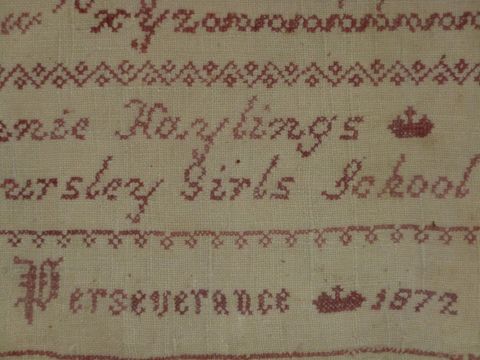 w xyz
nnie Haylings
ursley Girls School
Perseverance 1872